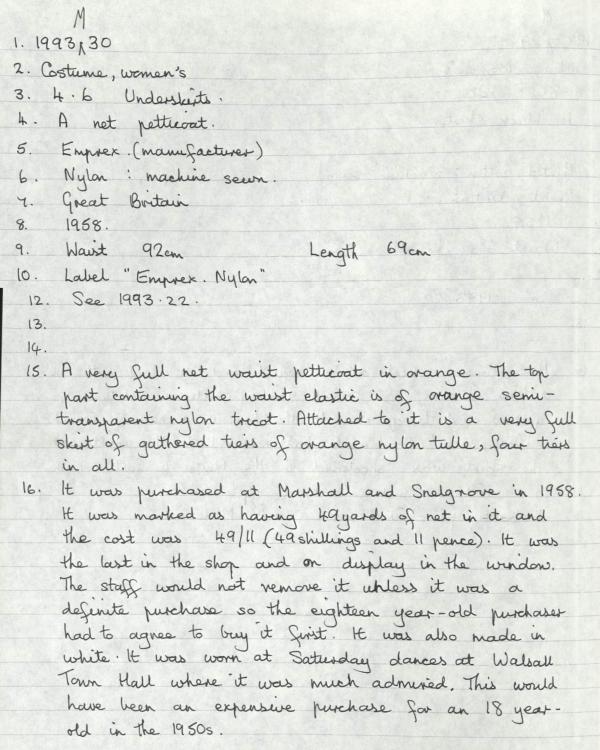 M
1. 1993 ʌ 30
2. Costume, women's
3. 4.6 Underskirts.
4. A net petticoat.
5. Emprex. (manufacturer)
6. Nylon : machine sewn.
7. Great Britain
8. 1958.
9. Waist 92cm Length 69cm
10. Label "Emprex. Nylon"
12. See 1993.22.
13.
14.
15. A very full net waist petticoat in orange. The top
part containing the waist elastic is of orange semi-
transparent nylon tricot. Attached to it is a very full
skirt of gathered tiers of orange nylon tulle, four tiers
in all.
16. It was purchased at Marshall and Snelgrove in 1958.
It was marked as having 49yards of net in it and
the cost was 49/11 (49shillings and 11 pence). It was
the last in the shop and on display in the window.
The staff would not remove it unless it was a
definite purchase so the eighteen year-old purchaser
had to agree to buy it first. It was also made in
white. It was worn at Saturday dances at Walsall
Town Hall where it was much admired. This would
have been an expensive purchase for an 18 year-
old in the 1950s.